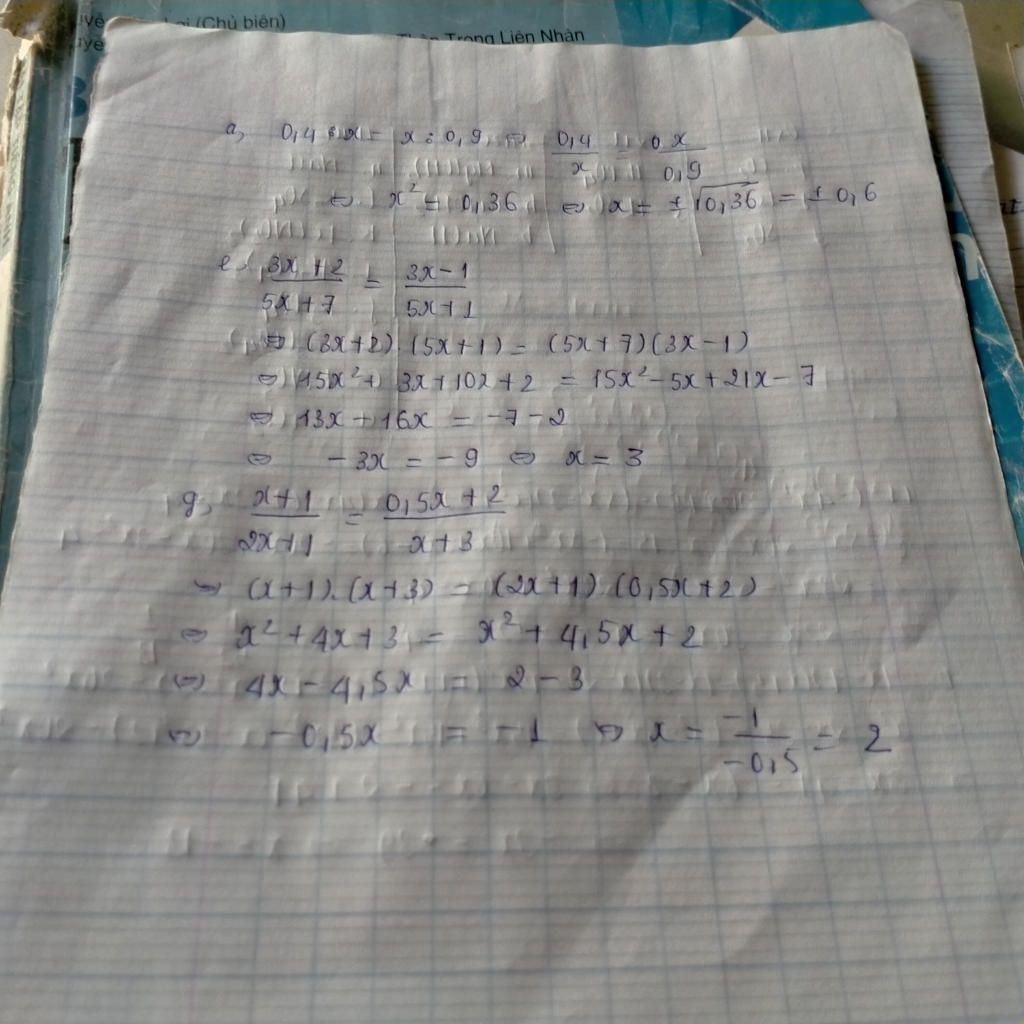 (Chủ biên)
Thân Trọng Liên Nhân
a, 0,4 : x = x : 0,9 ⇔ 0,4/x = x/0,9
⇔ x² = 0,36 ⇔ x = ±√0,36 = ± 0,6
e. (3x+2)/(5x+7) = (3x-1)/(5x+1)
⇔ (3x+2).(5x+1) = (5x+7)(3x-1)
⇔ 15x² + 3x+10x+2 = 15x²-5x+21x-7
⇔ 13x + 16x = -7-2
⇔ -3x = -9 ⇔ x = 3
g, (x+1)/(2x+1) = (0,5x+2)/(x+3)
⇔ (x+1).(x+3) = (2x+1).(0,5x+2)
⇔ x²+4x+3 = x²+4,5x+2
⇔ 4x-4,5x = 2-3
⇔ -0,5x = -1 ⇔ x = -1/-0,5 = 2